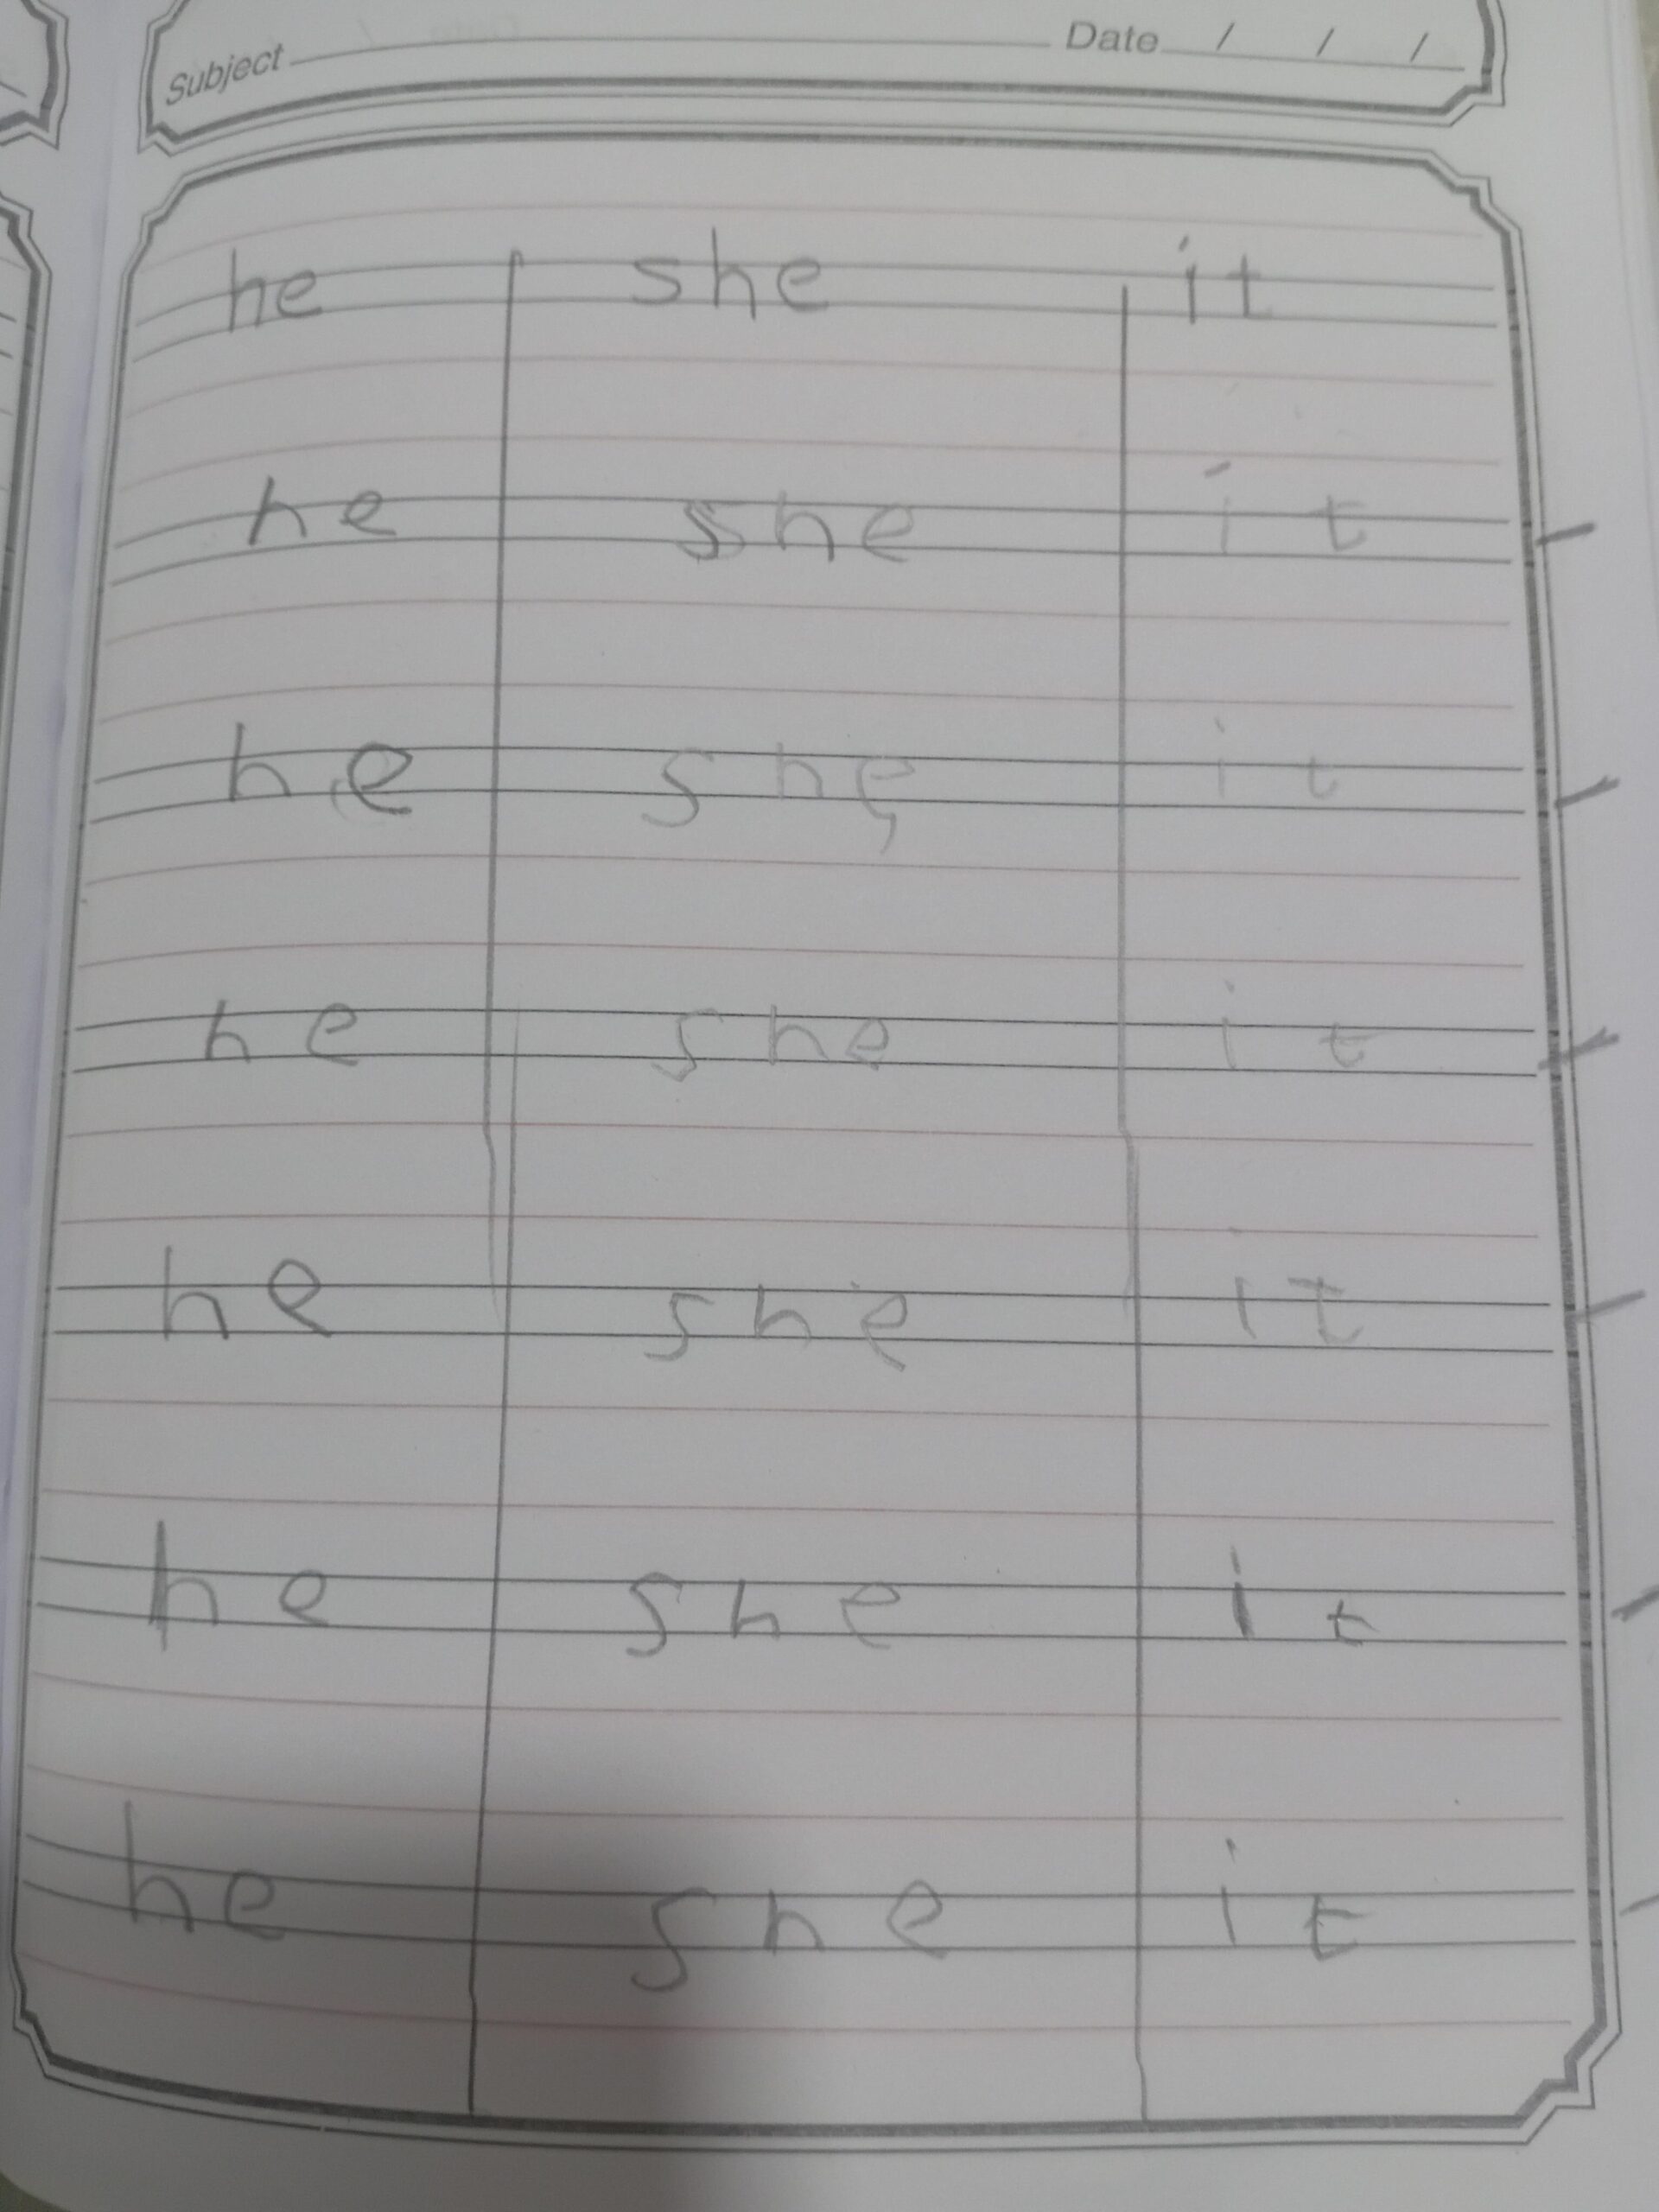 Subject Date / / /
he she it
he she it
he she it
he she it
he she it
he she it
he she it